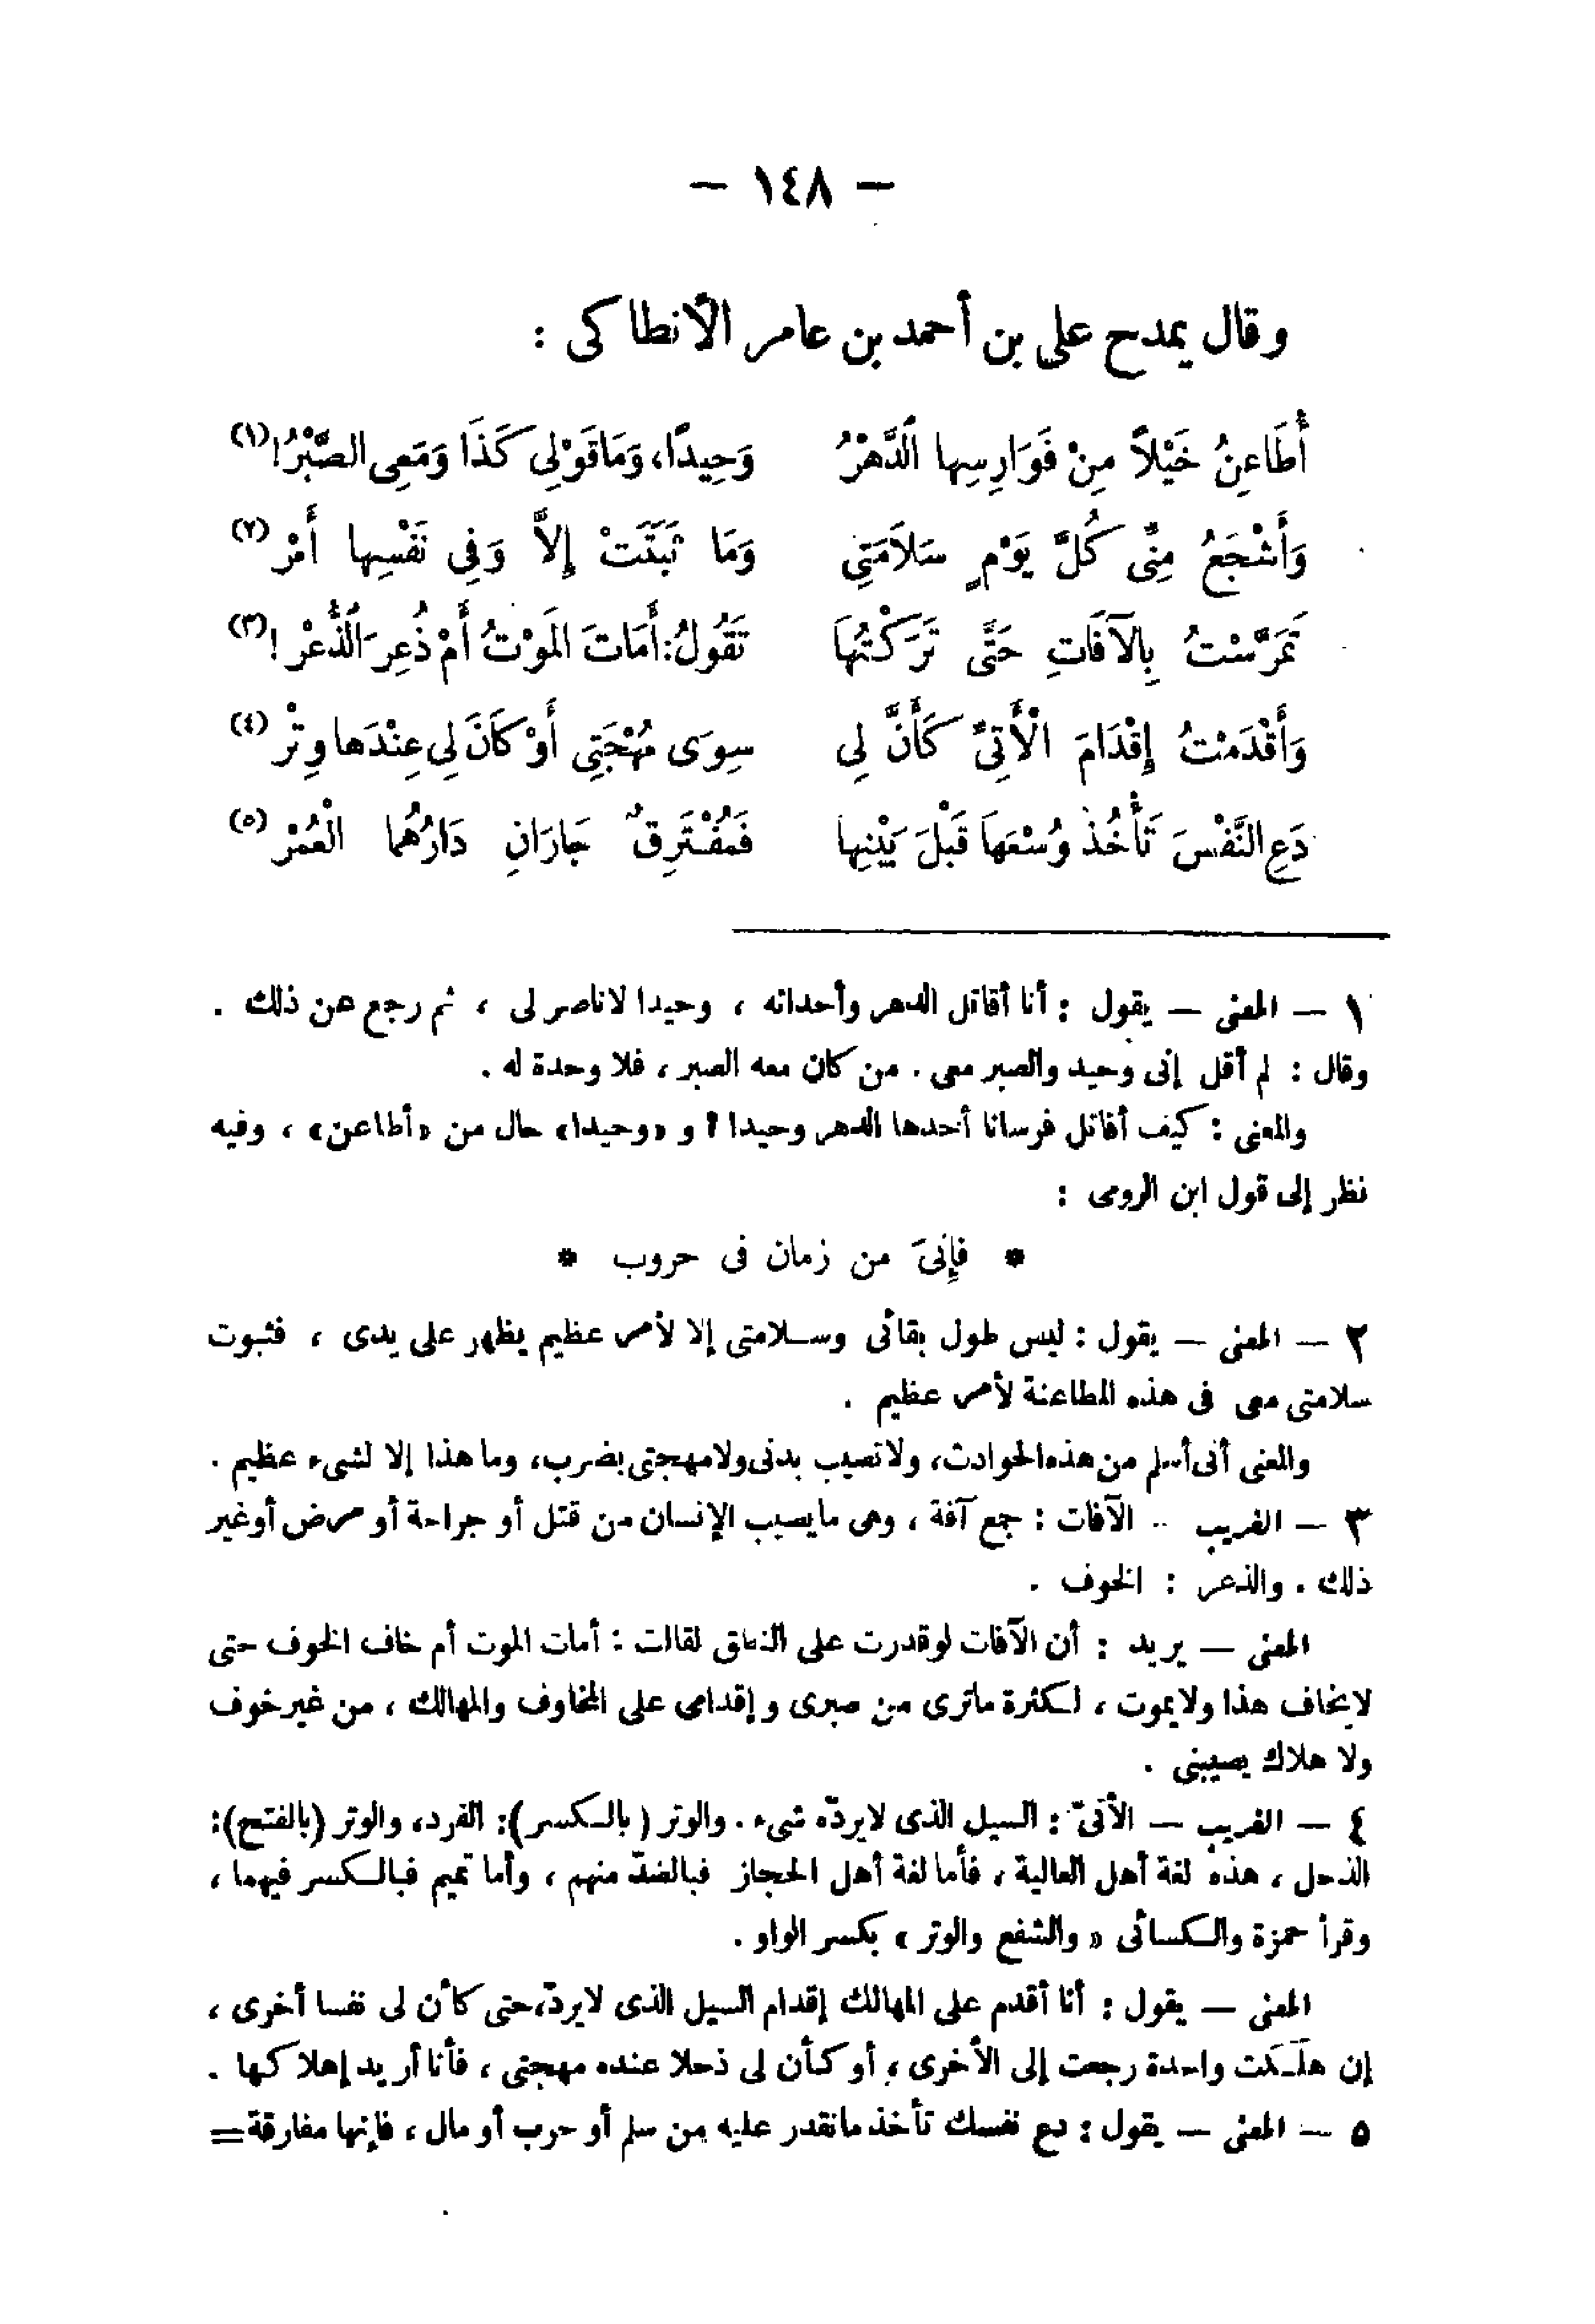 — ١٤٨ —
وقال يمدح على بن أحمد بن عامر الأنطاكى :
أُطَاعِنُ خَيْلاً مِنْ فَوَارِسِها الَّدَّهْرُ وَحِيدًا، وَمَا قَوْلِى كَذَا وَمَعِى الصَّبْرُ! (١)
وَأَشْجَعُ مِنِّى كُلَّ يَوْمٍ سَلاَمَتِى وَمَا ثَبَتَتْ إِلاَّ وَفِى نَفْسِها أَمْرُ (٢)
تَمَرَّسْتُ بِالآفَاتِ حَتَّى تَرَكْتُهَا تَقُولُ: أَمَاتَ المَوْتُ أَمْ ذُعِرَ الذُّعْرُ ! (٣)
وَأَقْدَمْتُ إِقْدَامَ الْأَتِىِّ كَأَنَّ لِى سِوَى مُهْجَتِى أَوْ كَانَ لِى عِنْدَها وِتْرُ (٤)
دَعِ النَّفْسَ تَأْخُذْ وُسْعَهَا قَبْلَ بَيْنِها فَمُفْتَرِقٌ جَارَانِ دَارُهُما الْعُمْرُ (٥)
١ — المعنى — يقول : أنا أقاتل الدهر وأحداثه ، وحيدا لا ناصر لى ، ثم رجع عن ذلك .
وقال : لم أقل إنى وحيد والصبر معى . من كان معه الصبر ، فلا وحدة له .
والمعنى : كيف أقاتل فرسانا أحدها الدهر وحيدا ؟ و «وحيدا» حال من «أطاعن» ، وفيه
نظر إلى قول ابن الرومى :
* فإنىَ من زمان فى حروب *
٢ — المعنى — يقول : ليس طول بقائى وسلامتى إلا لأمر عظيم يظهر على يدى ، فثبوت
سلامتى معى فى هذه المطاعنة لأمر عظيم .
والمعنى أنى أسلم من هذه الحوادث، ولا تصيب بدنى ولا مهجتى بضرب، وما هذا إلا لشىء عظيم .
٣ — الغريب — الآفات : جمع آفة ، وهى ما يصيب الإنسان من قتل أو جراحة أو مرض أو غير
ذلك . والذعر : الخوف .
المعنى — يريد : أن الآفات لو قدرت على النطق لقالت : أمات الموت أم خاف الخوف حتى
لا يخاف هذا ولا يموت ، لكثرة ما ترى من صبرى وإقدامى على المخاوف والمهالك ، من غير خوف
ولا هلاك يصيبنى .
٤ — الغريب — الأتىّ : السيل الذى لا يردّه شىء . والوتر (بالكسر): الفرد، والوتر (بالفتح):
الذحل ، هذه لغة أهل العالية ، فأما لغة أهل الحجاز فبالضدّ منهم ، وأما تميم فبالكسر فيهما ،
وقرأ حمزة والكسائى « والشفع والوتر » بكسر الواو .
المعنى — يقول : أنا أقدم على المهالك إقدام السيل الذى لا يردّ، حتى كأن لى نفسا أخرى ،
إن هلَكَت واحدة رجعت إلى الأخرى ، أو كأن لى ذحلا عنده مهجتى ، فأنا أريد إهلاكها .
٥ — المعنى — يقول : دع نفسك تأخذ ما تقدر عليه من سلم أو حرب أو مال ، فإنها مفارقة =